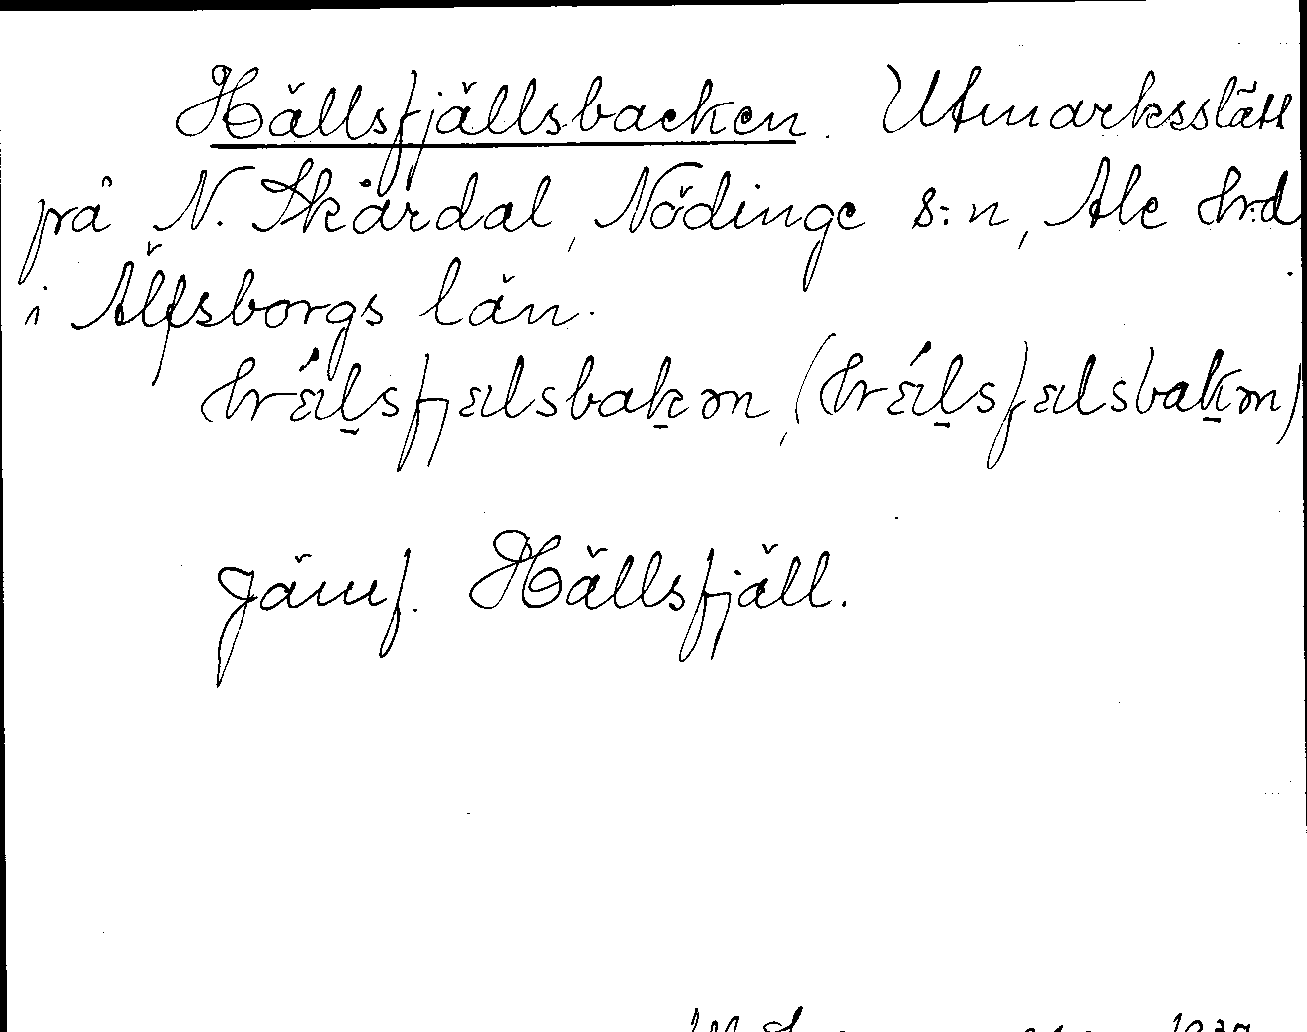 Hällsfjällsbacken. Utmarksslätt
på N. Skårdal, Nödinge s:n, Ale hrd
i Älfsborgs län.
hǽlsfjælsbakən, (hǽlsfælsbakən)
Jämf. Hällsfjäll.